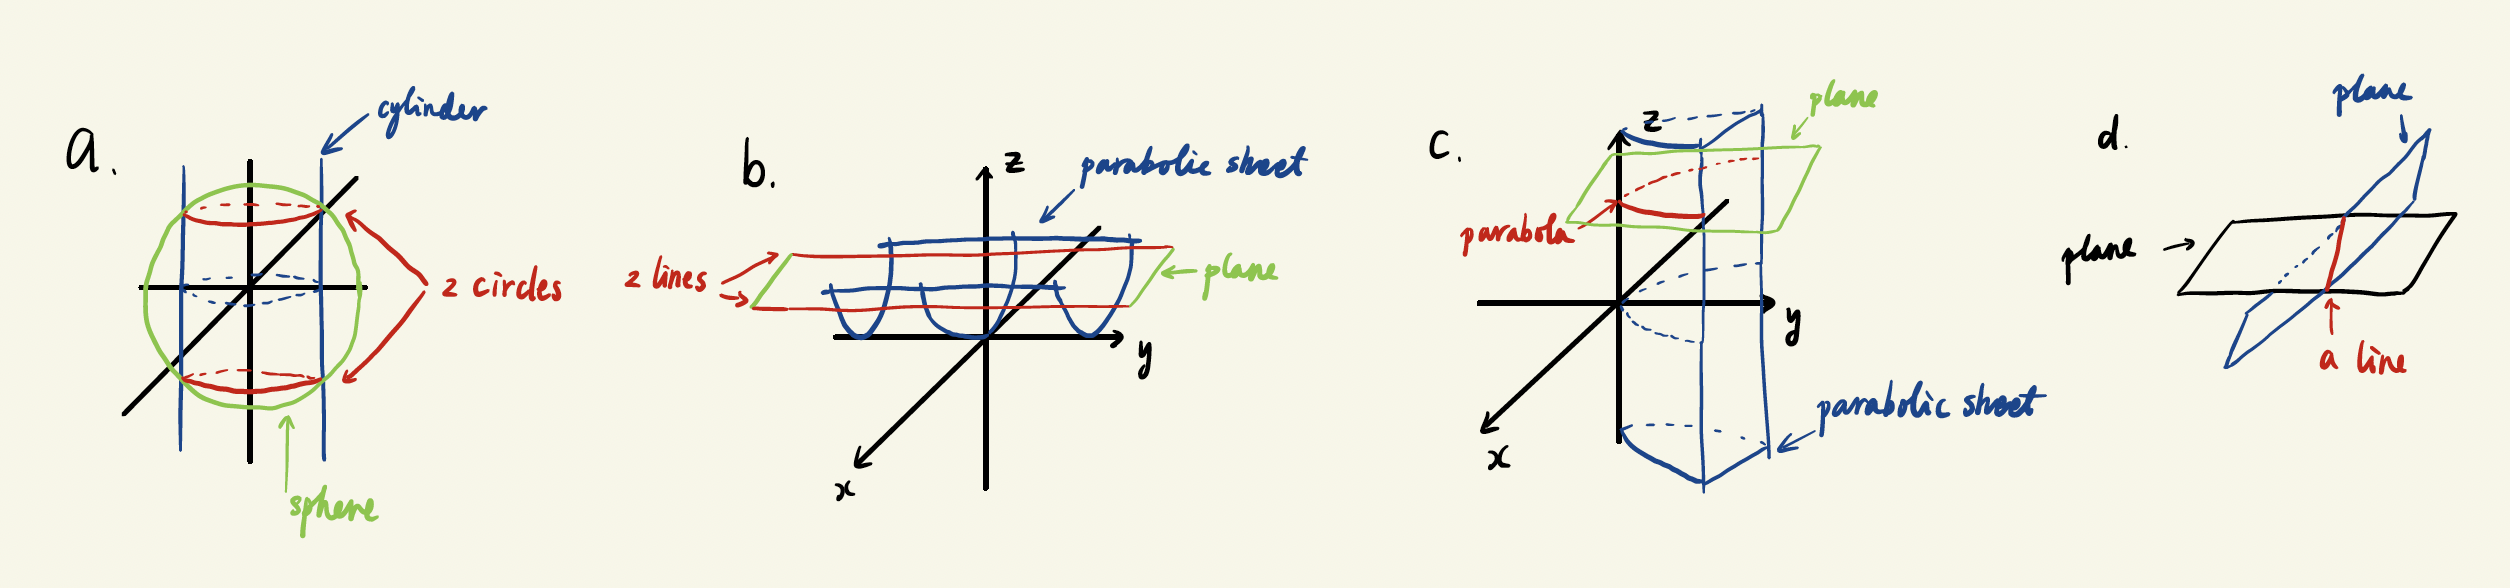 a.
cylinder
2 circles
sphere
b.
z
parabolic sheet
2 lines
plane
y
x
c.
z
plane
parabola
y
x
parabolic sheet
d.
plane
plane
a line